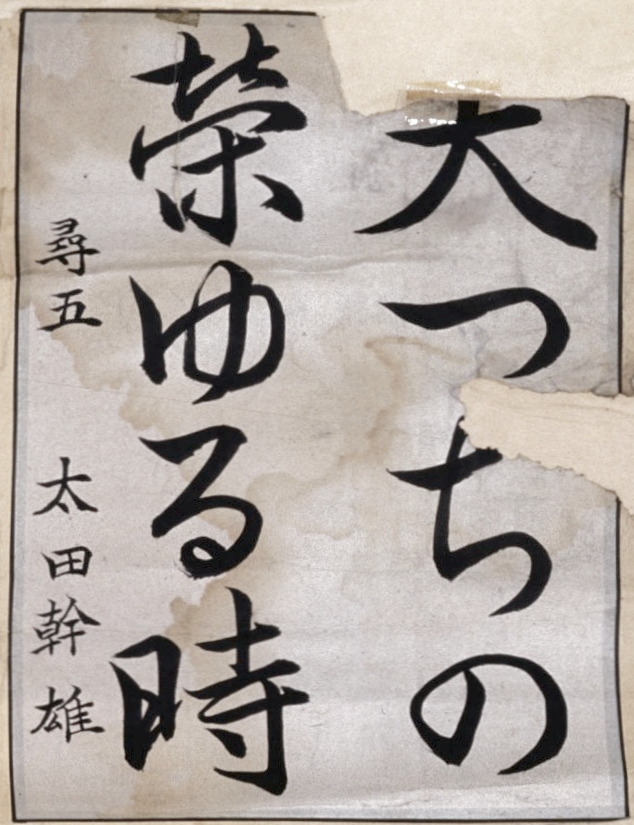 大つちの
栄ゆる時
尋五 太田幹雄